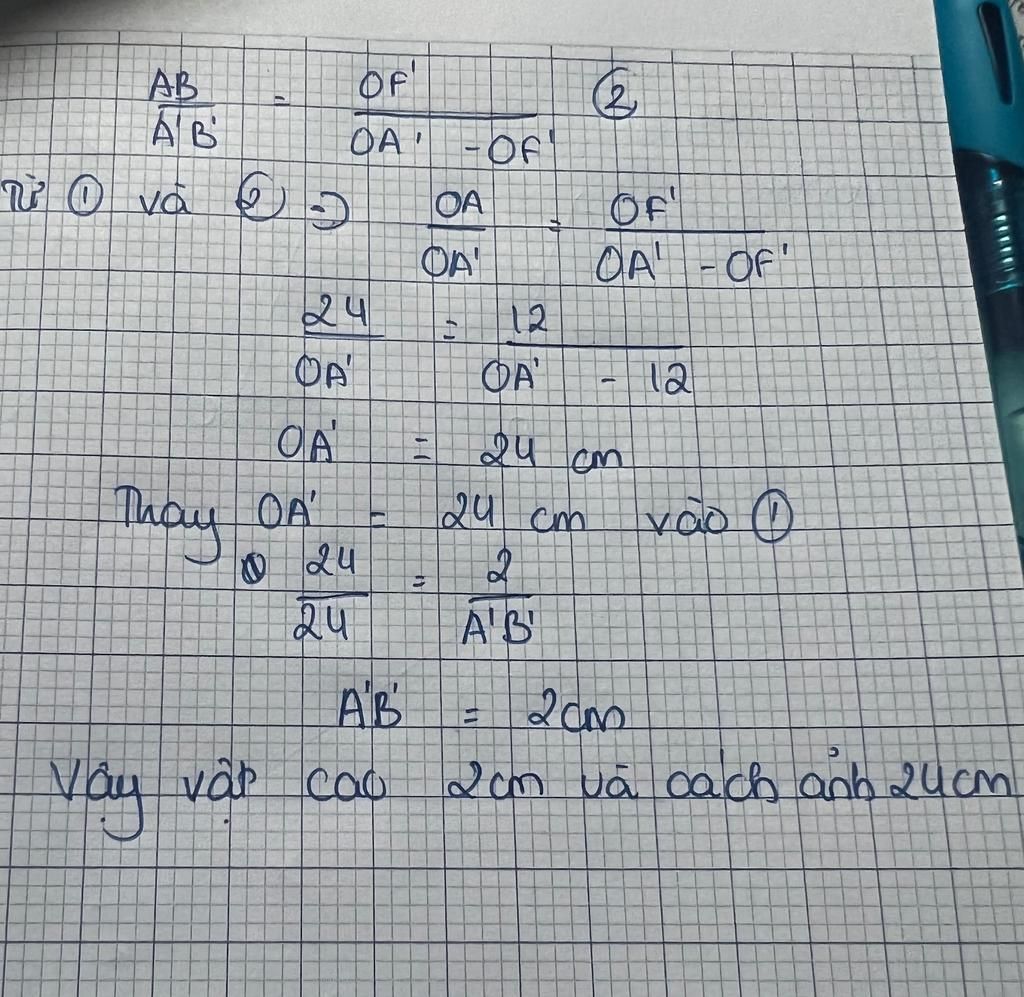 AB / A'B' = OF' / OA' - OF' ②
Từ ① và ② => OA / OA' = OF' / OA' - OF'
24 / OA' = 12 / OA' - 12
OA' = 24 cm
Thay OA' = 24 cm vào ①
24 / 24 = 2 / A'B'
A'B' = 2cm
Vậy vật cao 2cm và cách ảnh 24cm